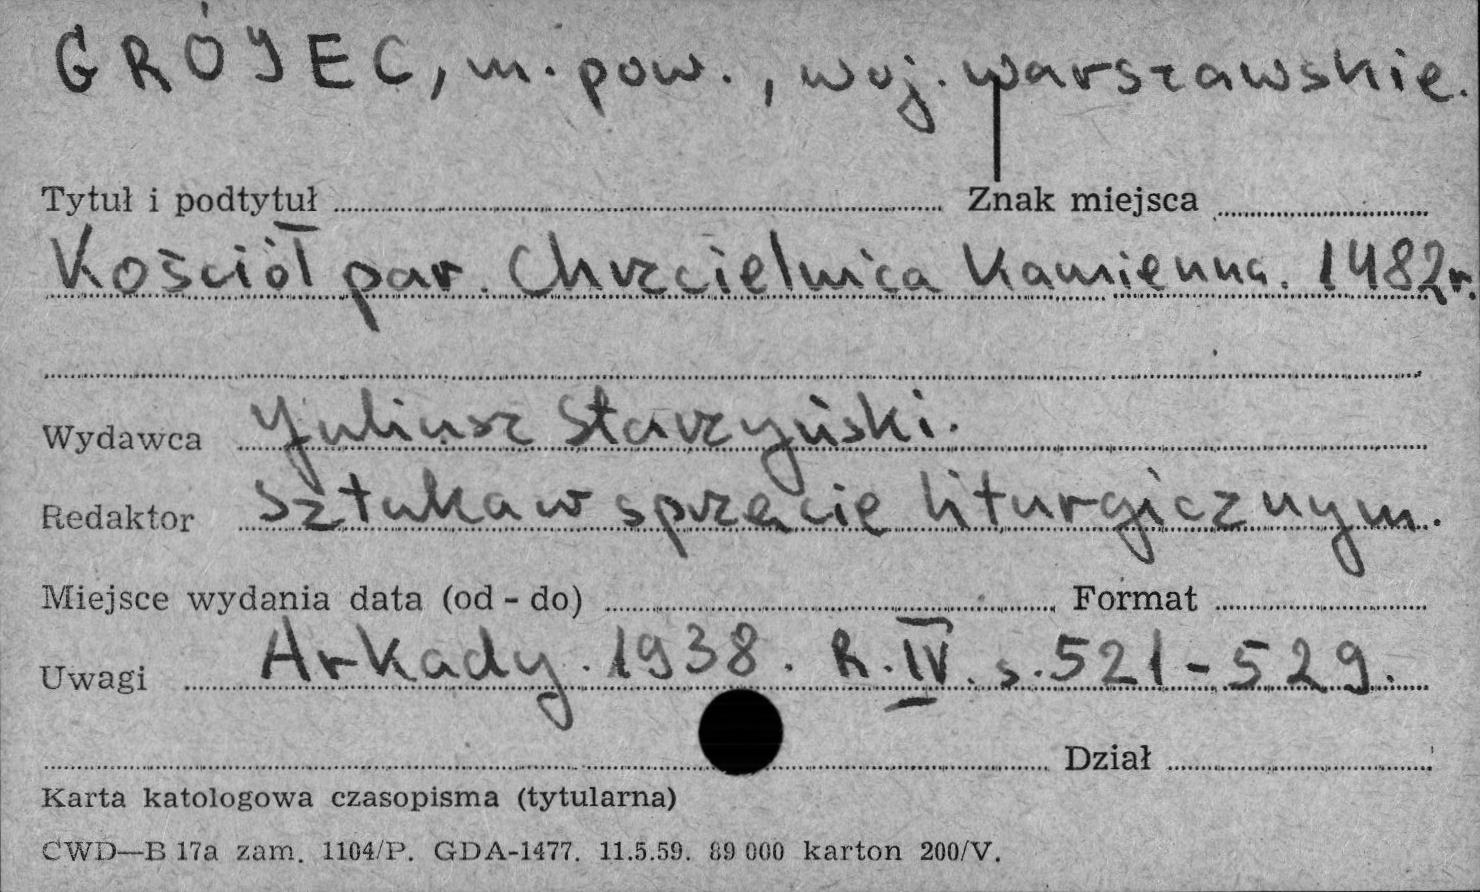 GRÓJEC, m. pow., woj. warszawskie.
Tytuł i podtytuł Znak miejsca
Kościół par. Chrzcielnica kamienna. 1482r.
Wydawca Juliusz Starzyński.
Redaktor Sztuka w sprzęcie liturgicznym.
Miejsce wydania data (od - do) Format
Uwagi Arkady. 1938. R. IV. s. 521-529.
Dział
Karta katologowa czasopisma (tytularna)
CWD—B 17a zam. 1104/P. GDA-1477. 11.5.59. 89 000 karton 200/V.